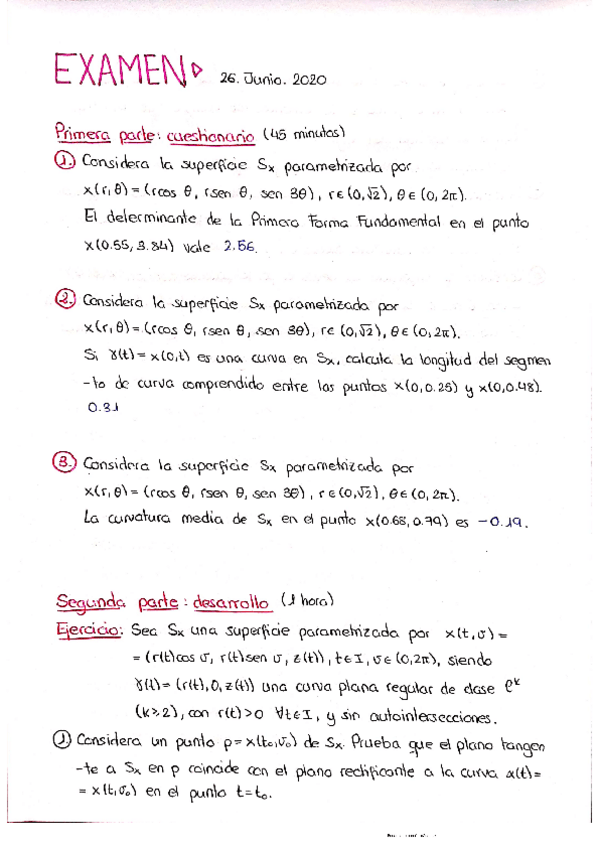 EXAMEN 26. Junio. 2020
Primera parte: cuestionario (45 minutos)
1. Considera la superficie Sx parametrizada por
x(r,θ) = (rcos θ, rsen θ, sen 3θ), r∈(0,√2), θ∈(0,2π).
El determinante de la Primera Forma Fundamental en el punto
x(0.55, 3.84) vale 2.56.
2. Considera la superficie Sx parametrizada por
x(r,θ) = (rcos θ, rsen θ, sen 3θ), r∈(0,√2), θ∈(0,2π).
Si γ(t) = x(0,t) es una curva en Sx, calcula la longitud del segmen
-to de curva comprendido entre los puntos x(0,0.25) y x(0,0.48).
0.31
3. Considera la superficie Sx parametrizada por
x(r,θ) = (rcos θ, rsen θ, sen 3θ), r∈(0,√2), θ∈(0,2π).
La curvatura media de Sx en el punto x(0.68,0.79) es -0.19.
Segunda parte: desarrollo (1 hora)
Ejercicio: Sea Sx una superficie parametrizada por x(t,υ) =
= (r(t)cos υ, r(t)sen υ, z(t)), t∈I, υ∈(0,2π), siendo
γ(t) = (r(t),0,z(t)) una curva plana regular de clase ℓᵏ
(k≥2), con r(t)>0 ∀t∈I, y sin autointersecciones.
1) Considera un punto p=x(t₀,υ₀) de Sx. Prueba que el plano tangen
-te a Sx en p coincide con el plano rectificante a la curva α(t)=
= x(t,υ₀) en el punto t=t₀.